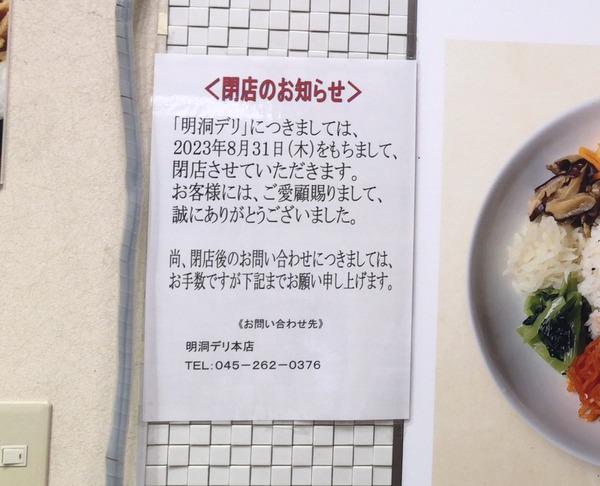 ＜閉店のお知らせ＞
「明洞デリ」につきましては、
2023年8月31日(木)をもちまして、
閉店させていただきます。
お客様には、ご愛顧賜りまして、
誠にありがとうございました。
尚、閉店後のお問い合わせにつきましては、
お手数ですが下記までお願い申し上げます。
《お問い合わせ先》
明洞デリ本店
TEL:045－262－0376